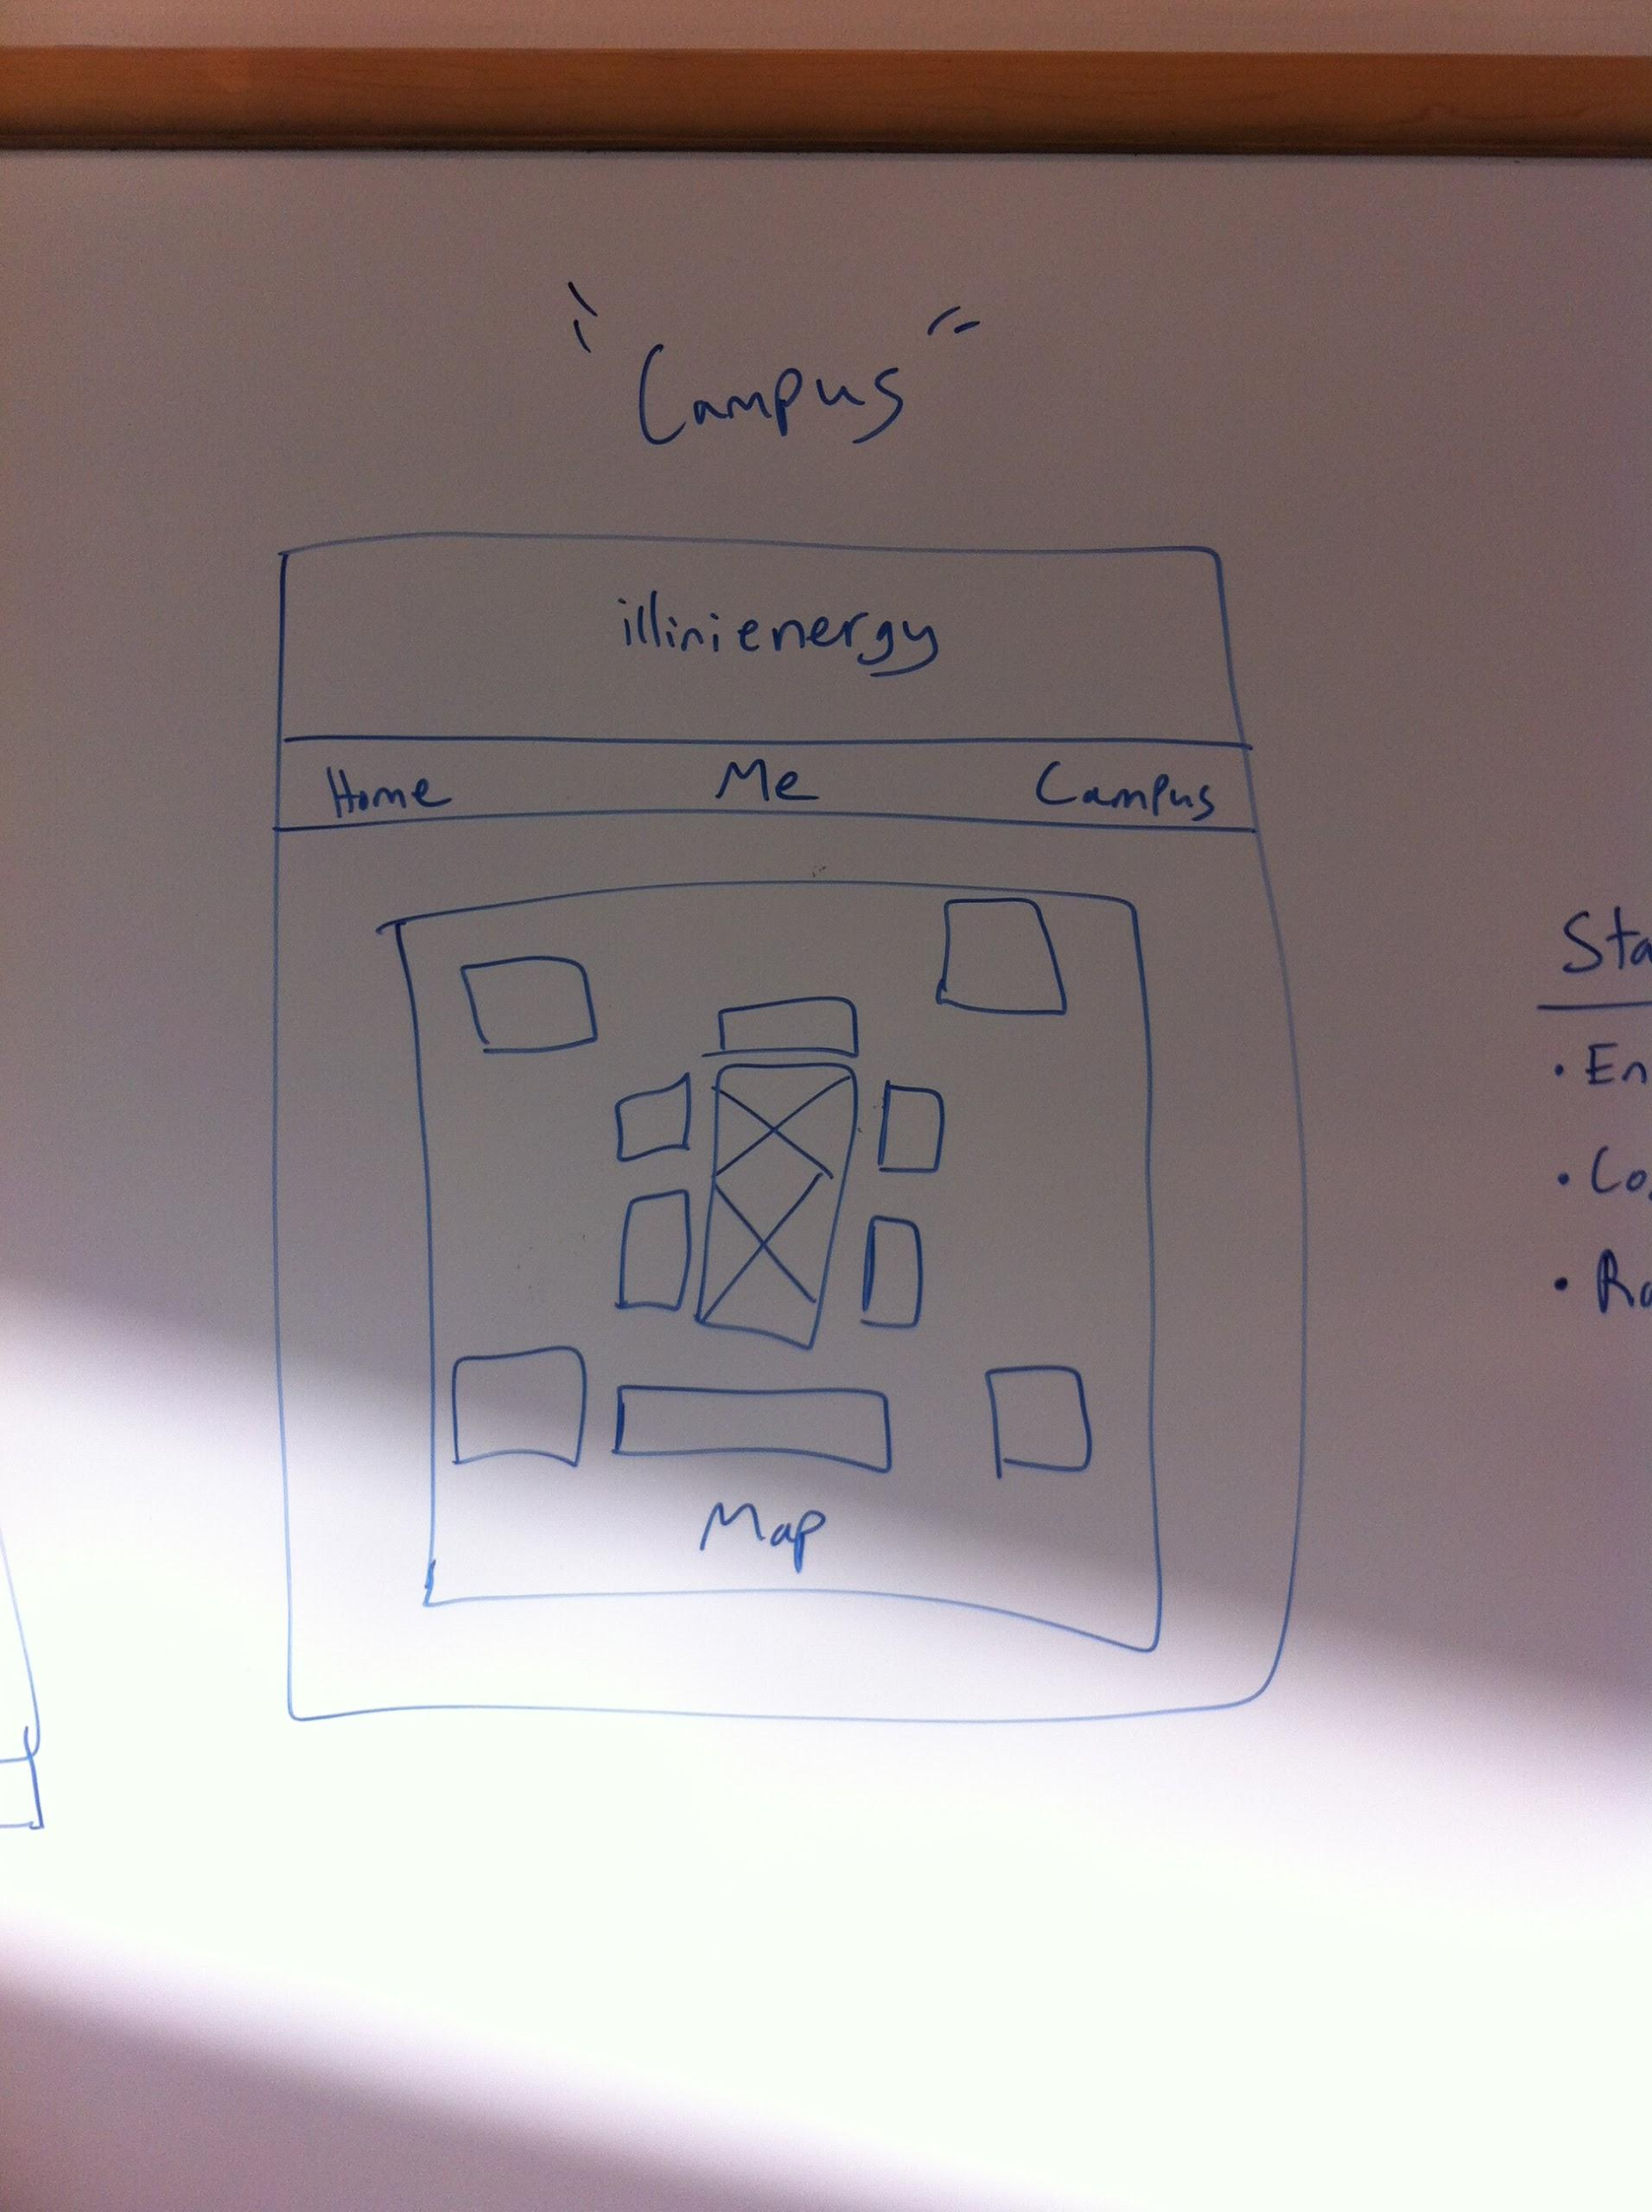 "Campus"
illinienergy
Home Me Campus
Map
Sta
• En
• Co
• Ra